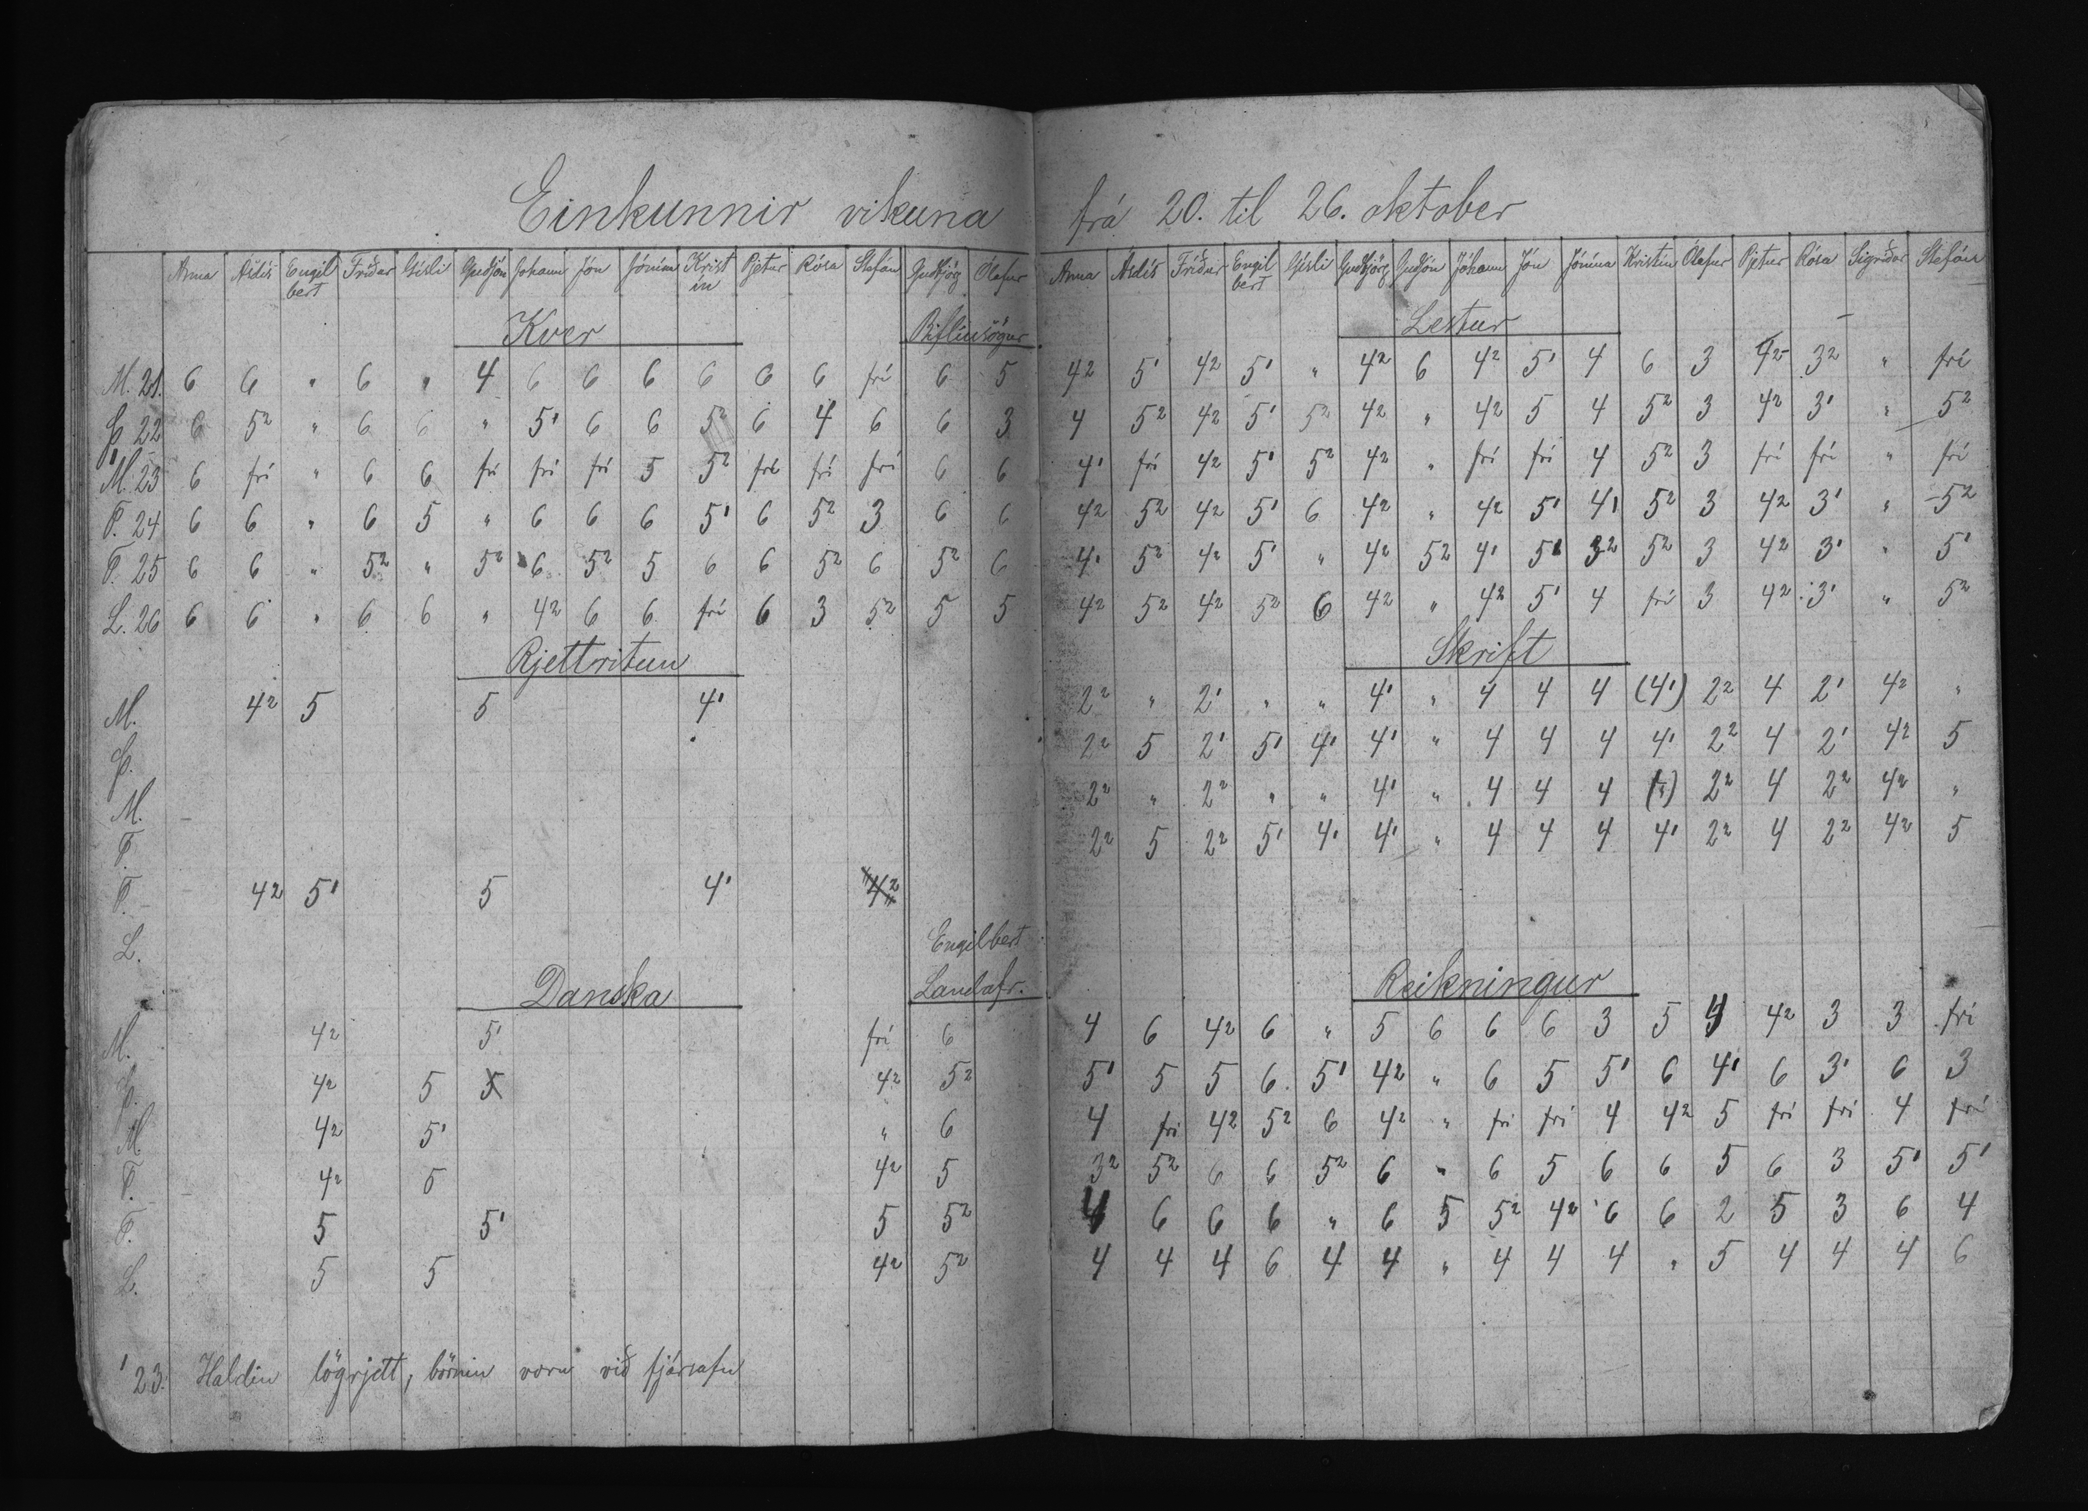 Einkunnir vikuna frá 20. til 26. oktober
Anna Ásdís Engilbert Fríður Gísli Guðjón Jóhann Jón Jónína Kristín Pjetur Rósa Stefán Guðbjörg Ólafur
Kver Biflíusögur
M. 21. 6 6 " 6 " 4 6 6 6 6 6 6 frí 6 5
Þ. 22 6 5² " 6 6 " 5¹ 6 6 5² 6 4 6 6 3
M. 23 6 frí " 6 6 frí frí frí 5 5² frí frí frí 6 6
F. 24 6 6 " 6 5 " 6 6 6 5¹ 6 5² 3 6 6
F. 25 6 6 " 5² " 5² 6 5² 5 6 6 5² 6 5² 6
L. 26 6 6 " 6 6 " 4² 6 6 frí 6 3 5² 5 5
Rjettritun
M. 4² 5 5 4¹
Þ.
M.
F.
F. 4² 5¹ 5 4¹ 4²
L.
Engilbert
Danska Landafr.
M. 4² 5¹ frí 6
Þ. 4² 5 5 4² 5²
M. 4² 5¹ " 6
F. 4² 5 4² 5
F. 5 5¹ 5 5²
L. 5 5 4² 5²
¹23. Haldin lögrjett, börnin voru við fjársafn
Anna Ásdís Fríður Engilbert Gísli Guðbjörg Guðjón Jóhann Jón Jónína Kristín Ólafur Pjetur Rósa Sigríður Stefán
Lestur
4² 5¹ 4² 5¹ " 4² 6 4² 5¹ 4 6 3 4² 3² " frí
4 5² 4² 5¹ 5² 4² " 4² 5 4 5² 3 4² 3¹ " 5²
4¹ frí 4² 5¹ 5² 4² " frí frí 4 5² 3 frí frí " frí
4² 5² 4² 5¹ 6 4² " 4² 5¹ 4¹ 5² 3 4² 3¹ " 5²
4¹ 5² 4² 5¹ " 4² 5² 4¹ 5¹ 3² 5² 3 4² 3¹ " 5¹
4² 5² 4² 5² 6 4² " 4² 5¹ 4 frí 3 4² 3¹ " 5²
Skrift
2² " 2¹ " " 4¹ " 4 4 4 (4¹) 2² 4 2¹ 4² "
2² 5 2¹ 5¹ 4¹ 4¹ " 4 4 4 4¹ 2² 4 2¹ 4² 5
2² " 2² " " 4¹ " 4 4 4 2² 4 2² 4² "
2² 5 2² 5¹ 4¹ 4¹ " 4 4 4 4¹ 2² 4 2² 4² 5
Reikningur
4 6 4² 6 " 5 6 6 6 3 5 4 4² 3 3 frí
5¹ 5 5 6 5¹ 4² " 6 5 5¹ 6 4¹ 6 3¹ 6 3
4 frí 4² 5² 6 4² " frí frí 4 4² 5 frí frí 4 frí
3² 5² 6 6 5² 6 " 6 5 6 6 5 6 3 5¹ 5¹
4 6 6 6 " 6 5 5² 4² 6 6 2 5 3 6 4
4 4 4 6 4 4 " 4 4 4 " 5 4 4 4 6